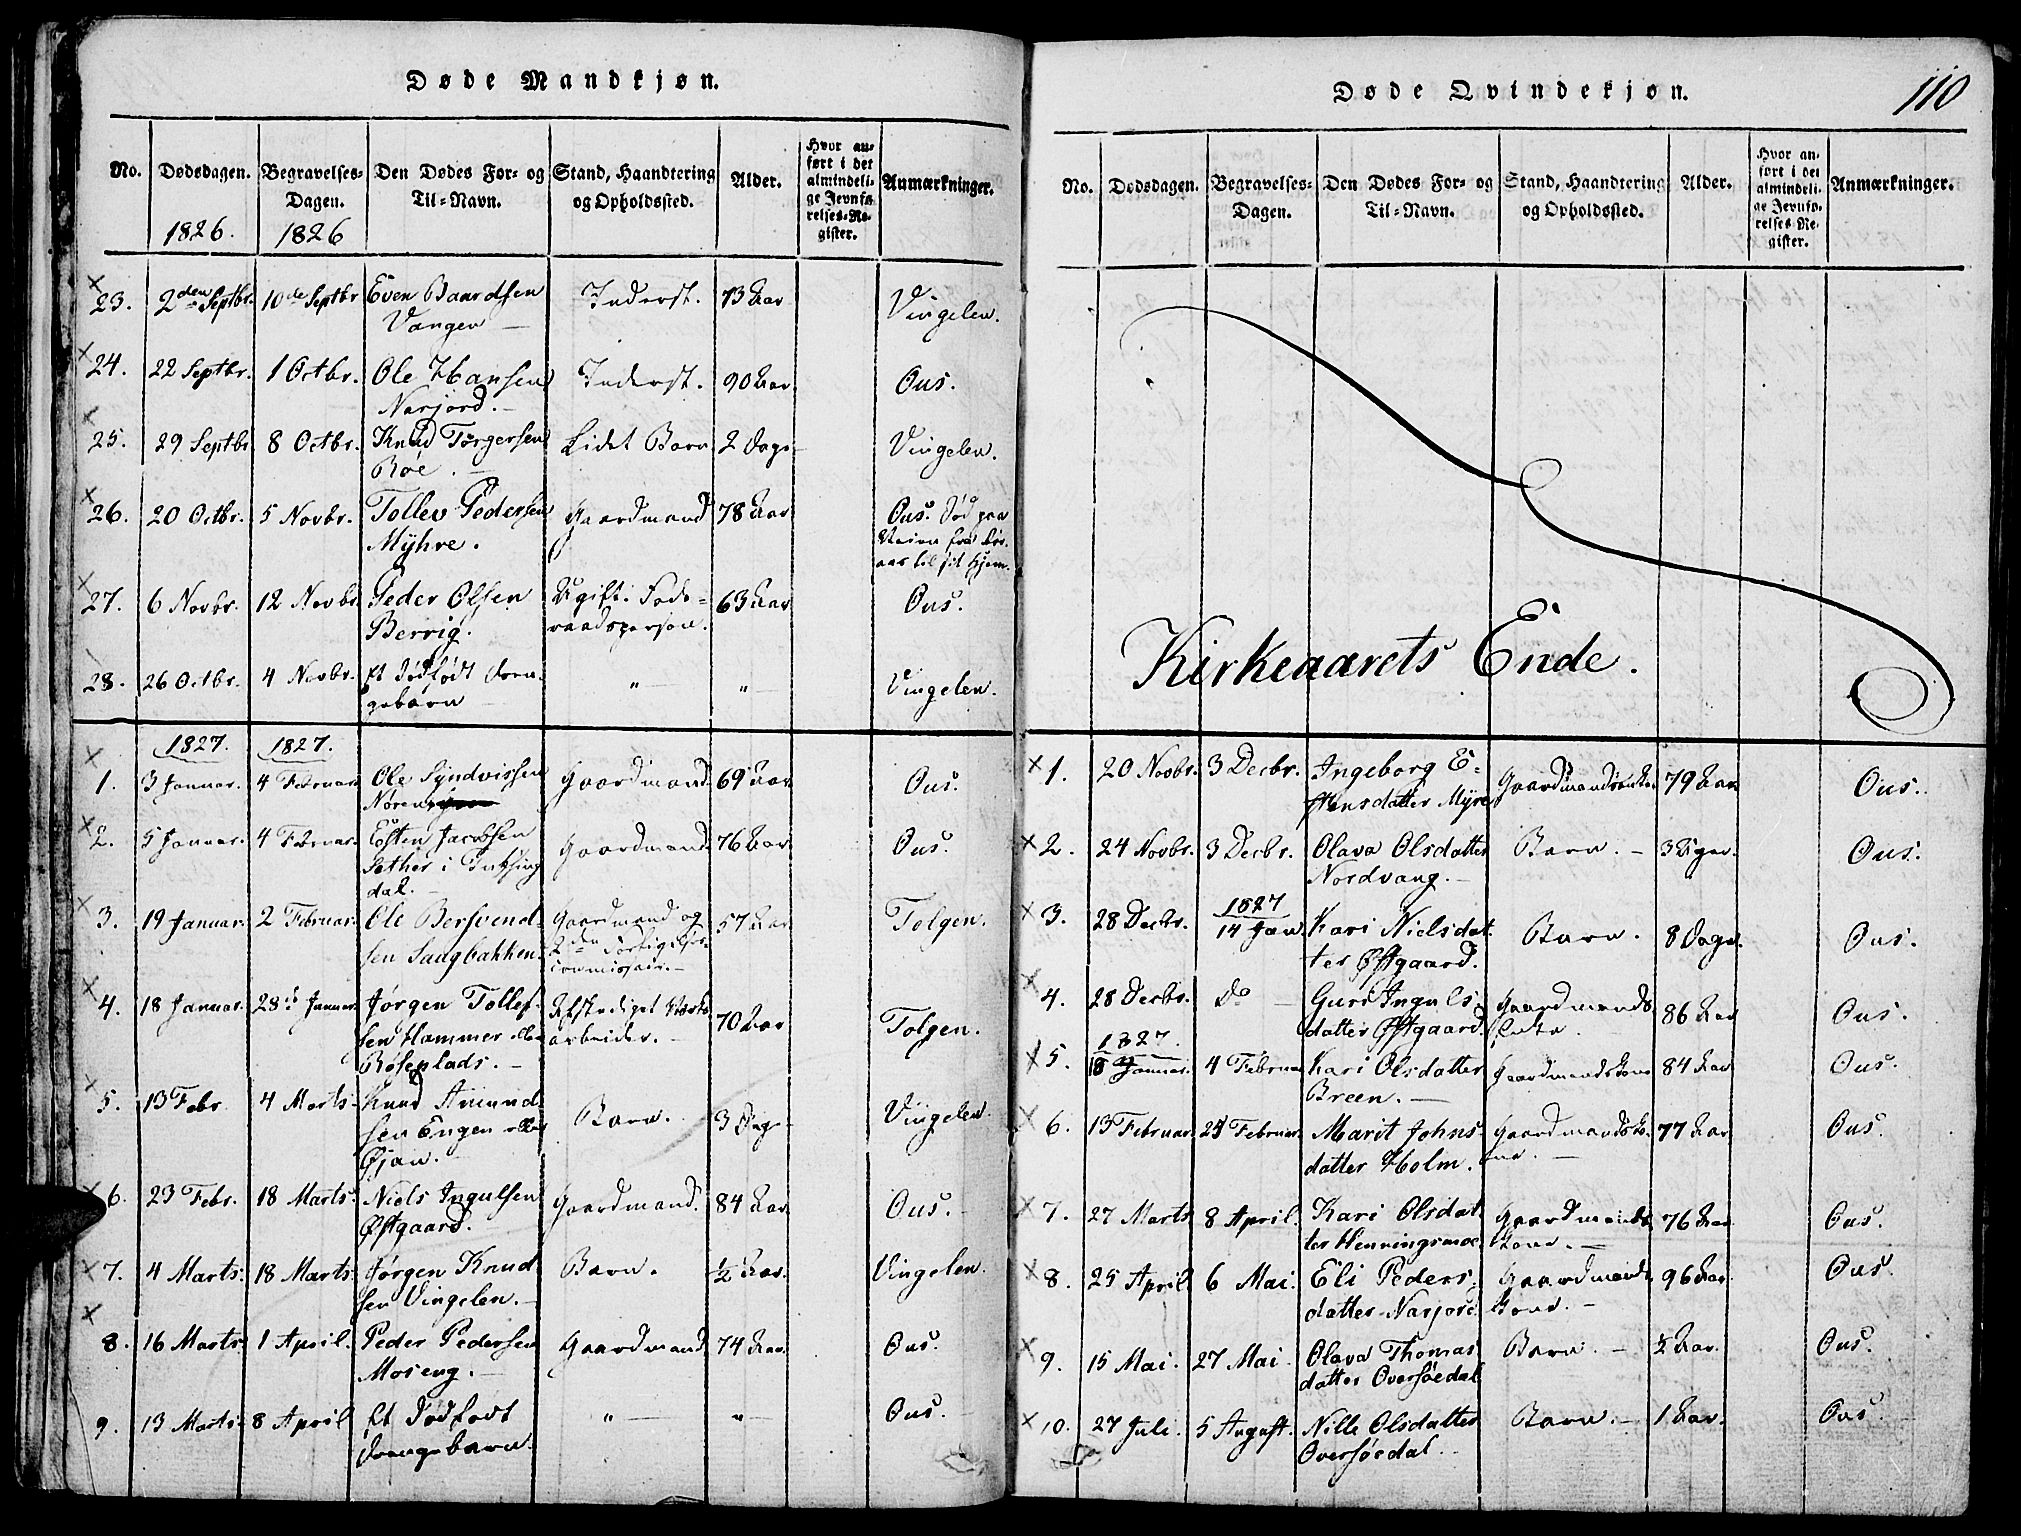 Døde Mandkjøn.
No. Dødsdagen. Begravelses-Dagen. Den Dødes For- og Til-Navn. Stand, Haandtering og Opholdssted. Alder. Hvor anført i det almindelige Jevnførelses-Register. Anmærkninger.
1826. 1826
23. 2den Septbr. 10de Septbr Even Baardsen Inderst. 73 Aar Vingelen.
Vangen
24. 22 Septbr. 1 Octbr. Ole Hansen Inderst. 90 Aar Ous.
Narjord.
25. 29 Septbr 8 Octbr. Knud Torgersen Lidet Barn 2 Dage Vingelen.
Røe.
26. 20 Octbr. 5 Novbr. Tollev Pedersen Gaardmand 78 Aar Ous. Død paa
Myhre. Veien fra
til sit Hjem.
27. 6 Novbr. 12 Novbr. Peder Olsen Ugift. Føde- 63 Aar Ous.
Berrig. raadsperson.
28. 26 Octbr. 4 Novbr. Et Dødfødt Dren- " " Vingelen.
gebarn
1827. 1827.
1. 3 Januar. 4 Februar. Ole Syndvissen Gaardmand. 69 Aar Ous.
Nøren
2. 5 Januar. 4 Februar. Esten Jacobsen Gaardmand. 76 Aar Ous.
Sether i Tufsing
dal.
3. 19 Januar. 2 Februar. Ole Bersvend- Gaardmand og 57 Aar Tolgen.
sen Saugbakken. 2den Forligelses-
commissair.
4. 18 Januar. 28de Januar Jørgen Tollef- Afskediget Værks 70 Aar Tolgen.
sen Hammer eller arbeider.
Røseplads.
5. 13 Febr. 4 Marts. Knud Amund- Barn. 3 Dage Vingelen.
sen Engen eller
Øjan.
6. 23 Febr. 18 Marts. Niels Ingulsen Gaardmand. 84 Aar Ous.
Øftgaard.
7. 4 Marts. 18 Marts. Jørgen Knud- Barn. ½ Aar. Vingelen.
sen Vingelen.
8. 16 Marts. 1 April. Peder Pedersen Gaardmand 74 Aar Ous.
Moseng.
9. 13 Marts. 8 April Et Dødfødt " " Ous.
Drengebarn.
Døde Qvindekjøn.
110
No. Dødsdagen. Begravelses-Dagen. Den Dødes For- og Til-Navn. Stand, Haandtering og Opholdssted. Alder. Hvor anført i det almindelige Jevnførelses-Register. Anmærkninger.
Kirkeaarets Ende.
1. 20 Novbr. 3 Decbr. Ingeborg E- Gaardmandsenke. 79 Aar Ous.
stensdatter Myre
2. 24 Novbr. 3 Decbr. Olava Olsdatter Barn. 3 Uger. Ous.
Nordvang.
1827
3. 28 Decbr. 14 Jan. Kari Nielsdat- Barn. 8 Dage. Ous.
ter Øftgaard.
4. 28 Decbr. Do Guro Inguls- Gaardmands 86 Aar Ous.
datter Øftgaard. Enke.
1827.
5. 18 Januar. 4 Februar Kari Olsdatter Gaardmandskone 84 Aar Ous.
Breen.
6. 13 Februar. 25 Februar. Marit Johns- Gaardmandsko- 77 Aar Ous.
datter Holm. ne.
7. 27 Marts 8 April. Kari Olsdat- Gaardmands 76 Aar Ous.
ter Henningsmoe. Kone.
8. 25 April 6 Mai. Eli Peders- Gaardmands 96 Aar. Ous.
datter Narjord. Kone.
9. 15 Mai. 27 Mai. Olava Thomas- Barn. ½ Aar. Ous.
datter Oversøedal
10. 27 Juli. 5 August. Nille Olsdatter Barn. 1 Aar. Ous.
Oversøedal.